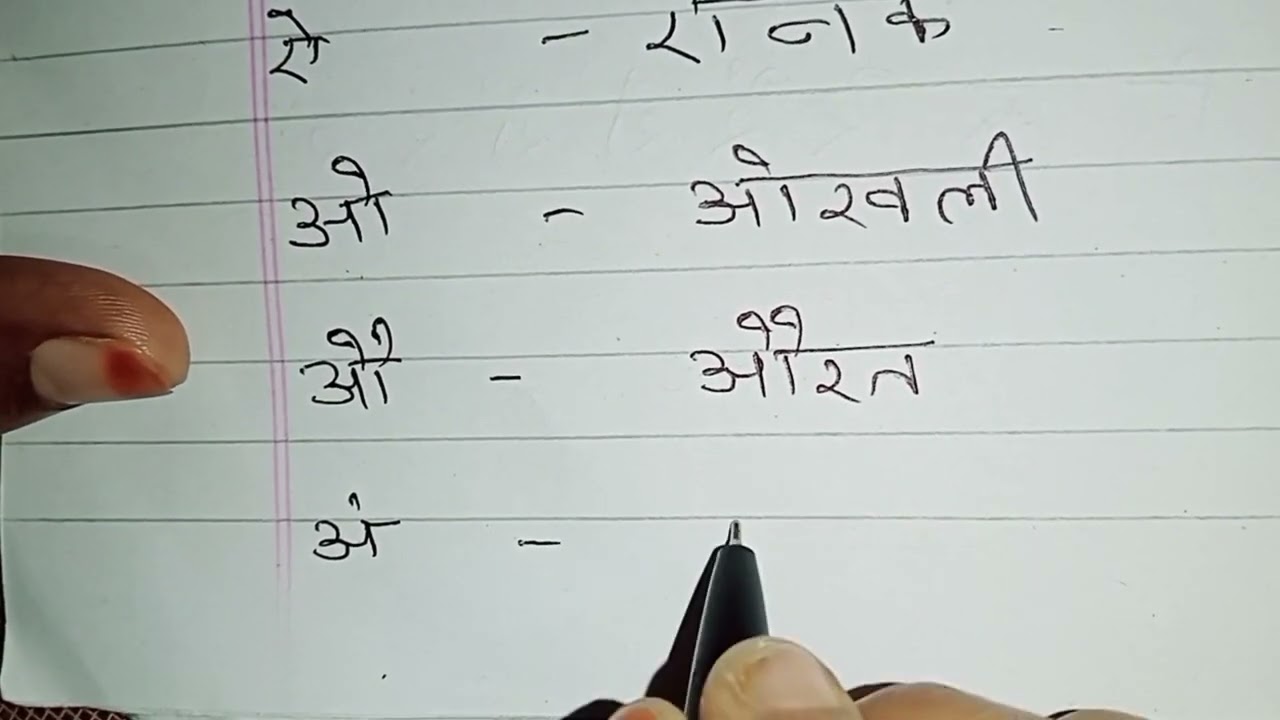 ऐ - ऐनक
ओ - ओखली
औ - औरत
अं -